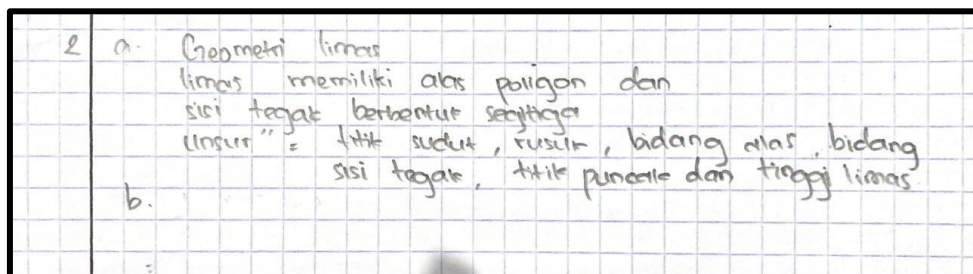 2 a. Geometri limas
limas memiliki alas poligon dan
sisi tegak berbentuk segitiga
Unsur" = titik sudut, rusuk, bidang alas, bidang
sisi tegak, titik puncak dan tinggi limas.
b.